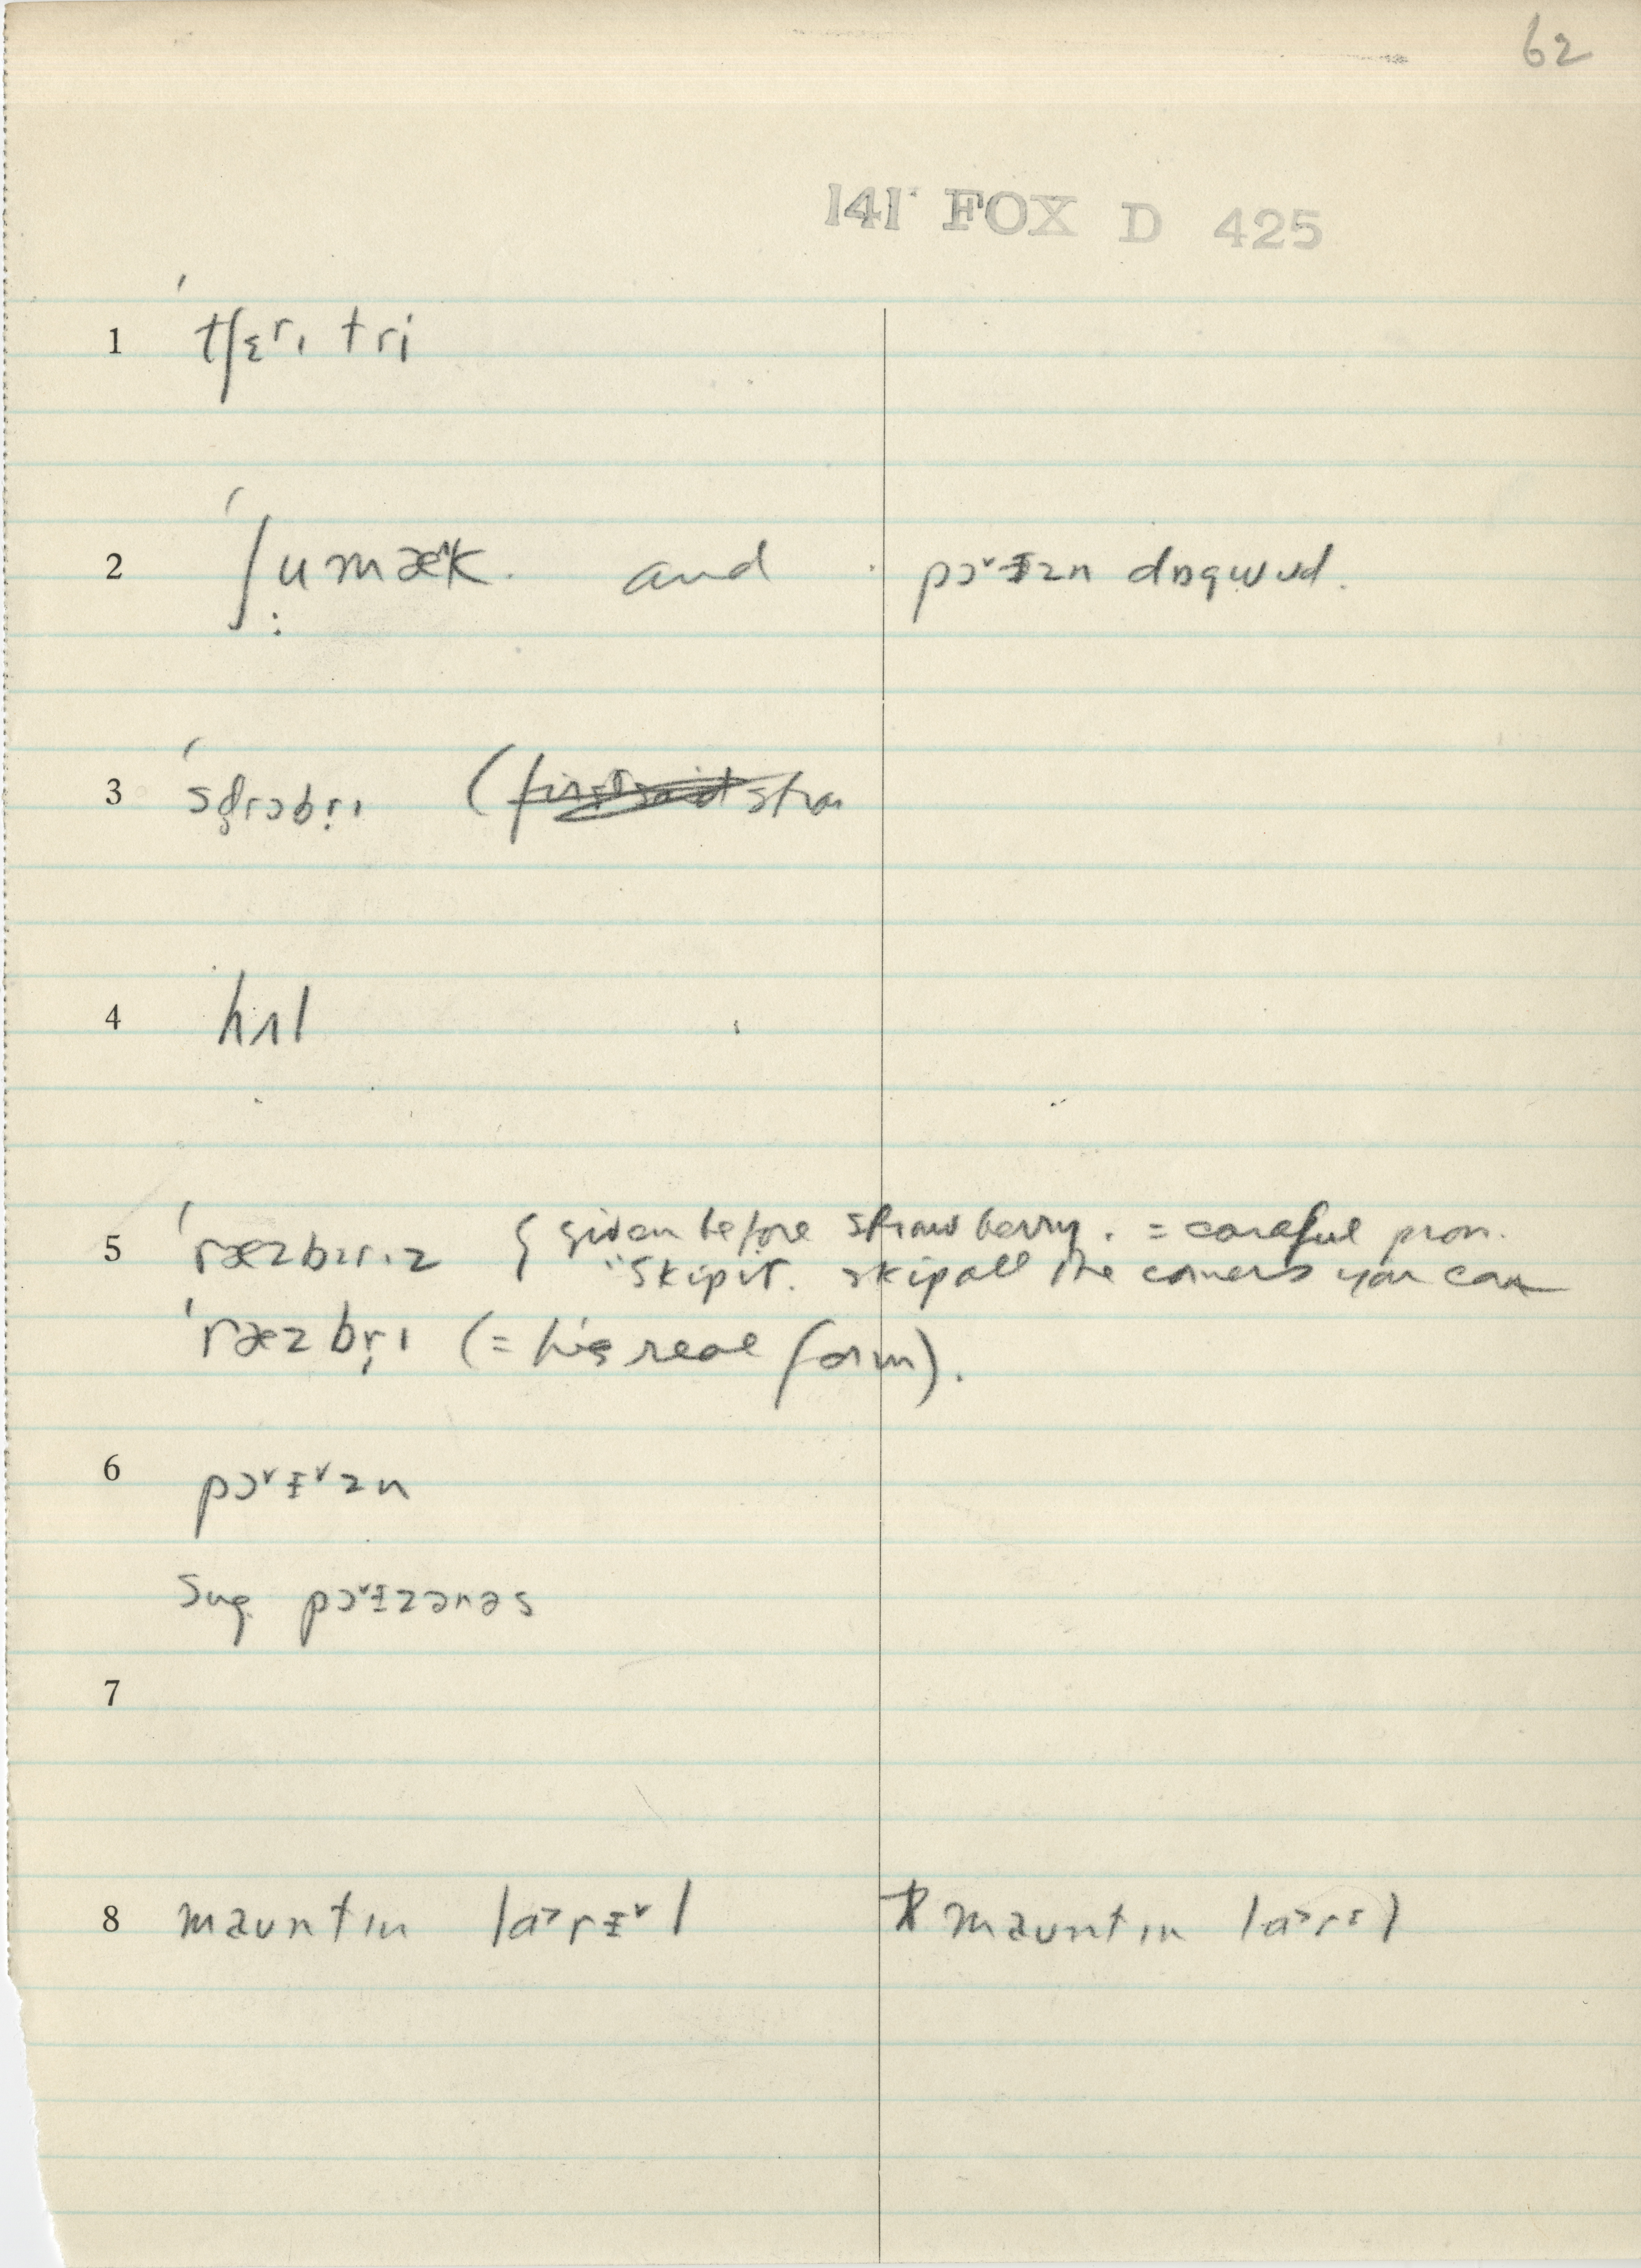 62
141 FOX D 425
1 ˈtʃɛrɪ tri
2 ˈʃumæ^k. and pɔ˅ɪzn dɒgwʊd.
3 ˈsd̥rɔbr̩ɪ (~~first said~~ stra
4 hʌl
5 ˈræzbɪrɪz { given before strawberry. = careful pron.
"Skip it. skip all the corners you can
ˈræzbr̩ɪ (= his real form).
6 pɔ˅ɨ˅zn
Sug. pɔ˅ɨzənəs
7
8 maʊntɪn la˃rɨ˅l * maʊntɪn la˃rɪl